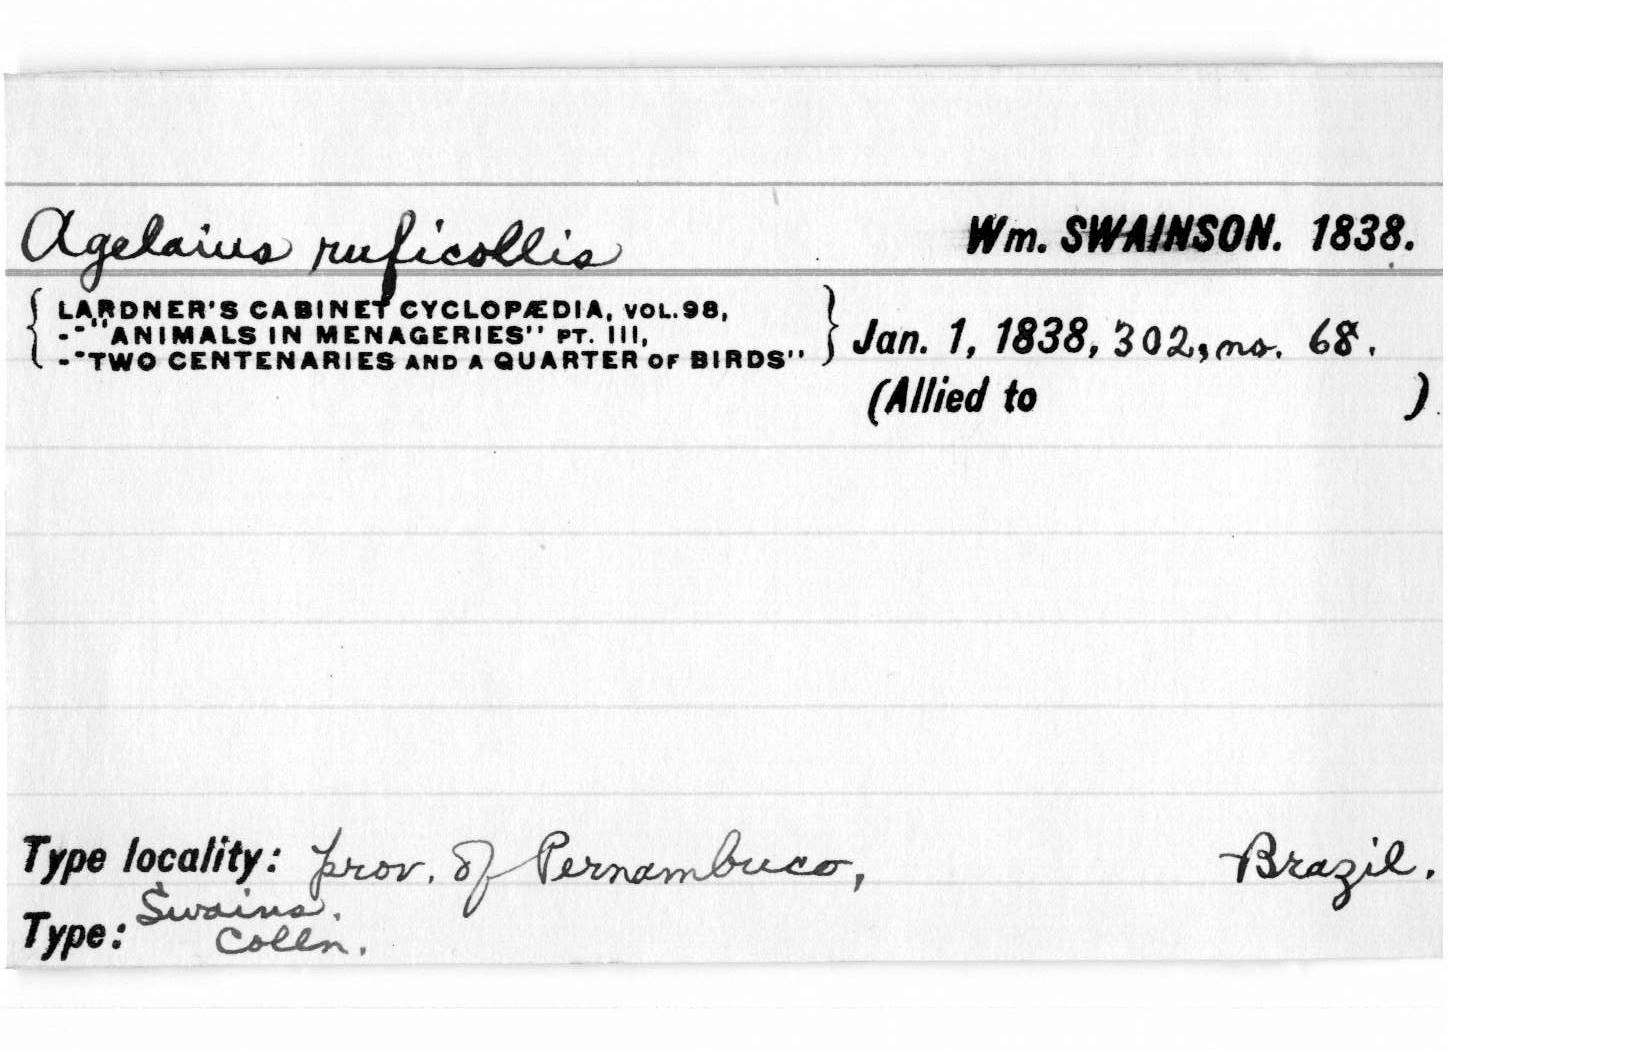 Agelaius ruficollis Wm. SWAINSON. 1838.
LARDNER'S CABINET CYCLOPÆDIA, VOL.98,
-"ANIMALS IN MENAGERIES" PT. III,
-"TWO CENTENARIES AND A QUARTER OF BIRDS" Jan. 1, 1838, 302, no. 68.
(Allied to )
Type locality: prov. of Pernambuco, Brazil.
Type: Swains.
Colln.